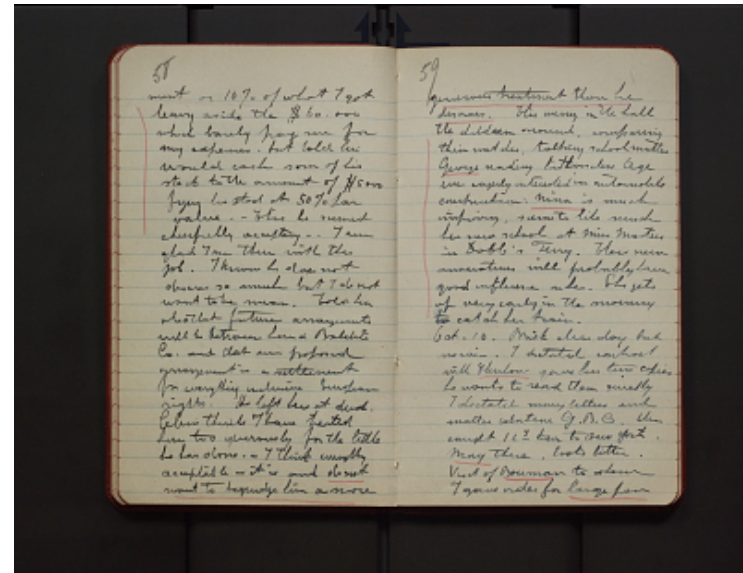 58
ment or 10% of what I got
leaving aside the $60.000
which barely pay me for
my expenses. but told him
would cash some of his
stock to the amount of $5000
his stock at 50% par
value. - This he seemed
cheerfully accepting. - I am
glad I am thru with this
job. I know he does not
deserve so much but I do not
want to be mean. Told him
also that future arrangements
will be between him & Bakelite
Co. and that our proposed
arrangement is a settlement
for everything
rights. He left here at
Celine thinks I have treated
him too generously for the little
he has done. - I think
acceptable - it is and do not
want to begrudge him a more
59
generous treatment than he
deserves. This evening in the hall
the children around, comparing
their watches, talking school matters
George reading Age
interested in automobile
construction. Nina is much
improving, seems to like much
her new school at Miss Masters
in Dobb's Ferry. These new
associations will probably have
good influence on her. She gets
up very early in the morning
to catch her train.
Oct. 10. Brisk clear day but
no rain. I dictated contract
with Thurlow gave him two copies
he wants to read them
I dictated many letters and
matter G.B.C. then
caught train to New York.
there, looks better.
Visit of to whom
I gave order for large